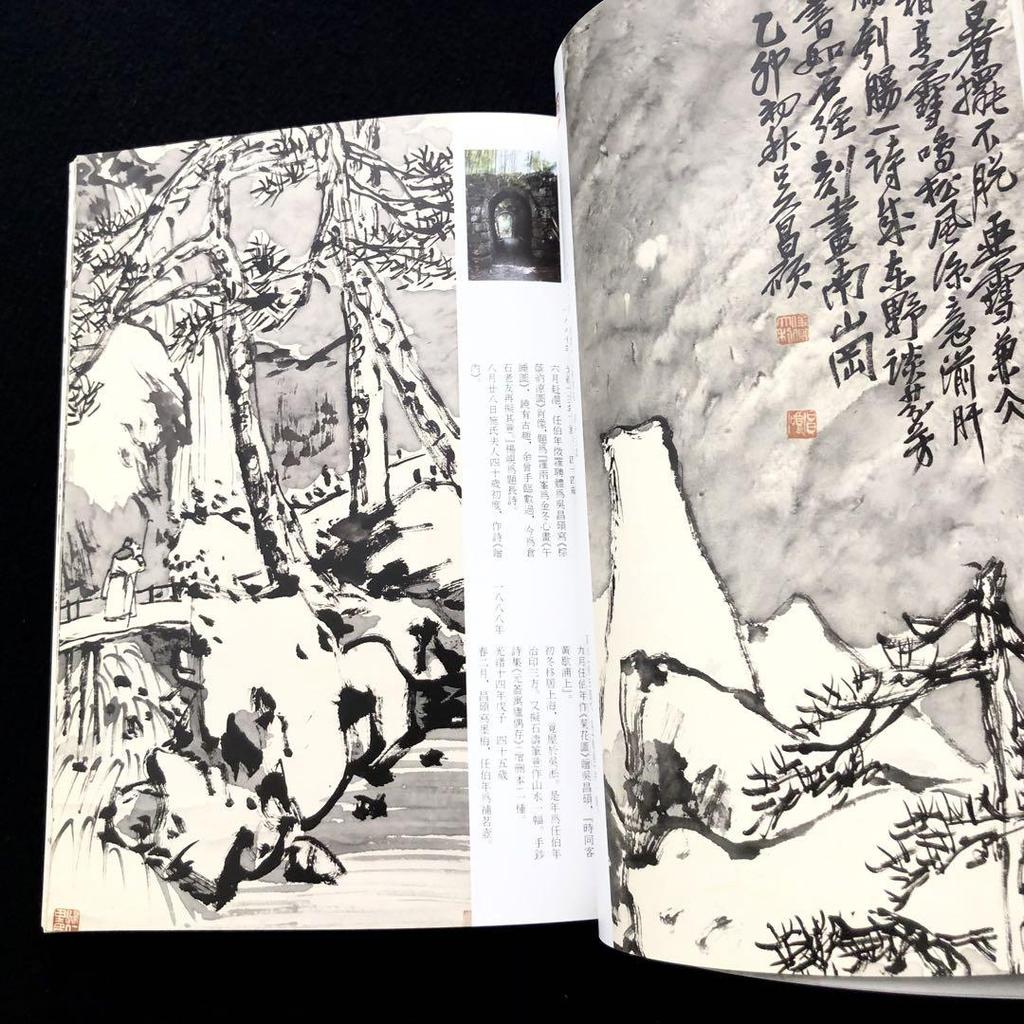 暑擺不脫畫雪兼
鳴松風涼意湔肝
腸一詩成東野談芬芳
書如石經刻畫南山岡
乙卯初秋吳昌碩
六月赴滬,任伯年倣羅聘體爲吳昌碩寫《棕
蔭納涼圖》肖像,題爲『羅兩峯爲金冬心畫《午
睡圖》,饒有古趣,余曾手臨數過,今爲倉
石老友再擬其意。』楊峴爲題長詩。
八月廿八日施氏夫人四十歲初度,作詩《贈
內》。
九月任伯年作《菊花圖》贈吳昌碩,『時同客
黃歇浦上』。
初冬移居上海,賃屋於吳淞。是年爲任伯年
治印三方。又擬石濤筆意作山水一幅。手鈔
詩集《元蓋寓廬偶存》增刪本一種。
一八八八年
光緒十四年戊子 四十五歲
春二月,昌碩寫墨梅,任伯年爲補茗壺。